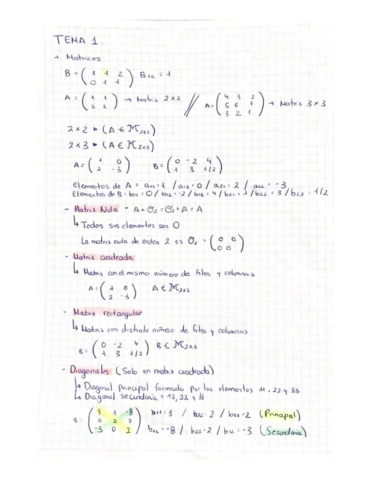 TEMA 1
1 Matrices
B = ( 1 1 2 / 0 1 1 ) B₁₂ = 1
A = ( 1 1 / 2 2 ) → Matriz 2x2 // A = ( 4 3 2 / 5 6 1 / 3 2 1 ) → Matriz 3x3
2x2 → (A ∈ M₂ₓ₂)
2x3 → (A ∈ M₂ₓ₃)
A = ( 1 0 / 2 -3 ) B = ( 0 -2 4 / 1 3 1/2 )
Elementos de A = a₁₁ = 1 / a₁₂ = 0 / a₂₁ = 2 / a₂₂ = -3
Elementos de B = b₁₁ = 0 / b₁₂ = -2 / b₁₃ = 4 / b₂₁ = 1 / b₂₂ = 3 / b₂₃ = 1/2
- Matriz Nula - A + O₂ = O₂ + A = A
↳ Todos sus elementos son 0
La matriz nula de orden 2 es O₂ = ( 0 0 / 0 0 )
- Matriz cuadrada
↳ Matriz con el mismo número de filas y columnas
A = ( 1 0 / 2 -3 ) A ∈ M₂ₓ₂
- Matriz rectangular
↳ Matriz con distinto número de filas y columnas
B = ( 0 -2 4 / 1 3 1/2 ) B ∈ M₂ₓ₃
- Diagonales (Solo en matriz cuadrada)
↳ Diagonal principal formada por los elementos 11, 22 y 33
↳ Diagonal secundaria = 13, 22 y 31
= ( 3 1 -8 / 0 2 7 / -3 0 2 ) b₁₁ = 3 / b₂₂ = 2 / = 2 (Principal)
= -8 / b₂₂ = 2 / = -3 (Secundaria)